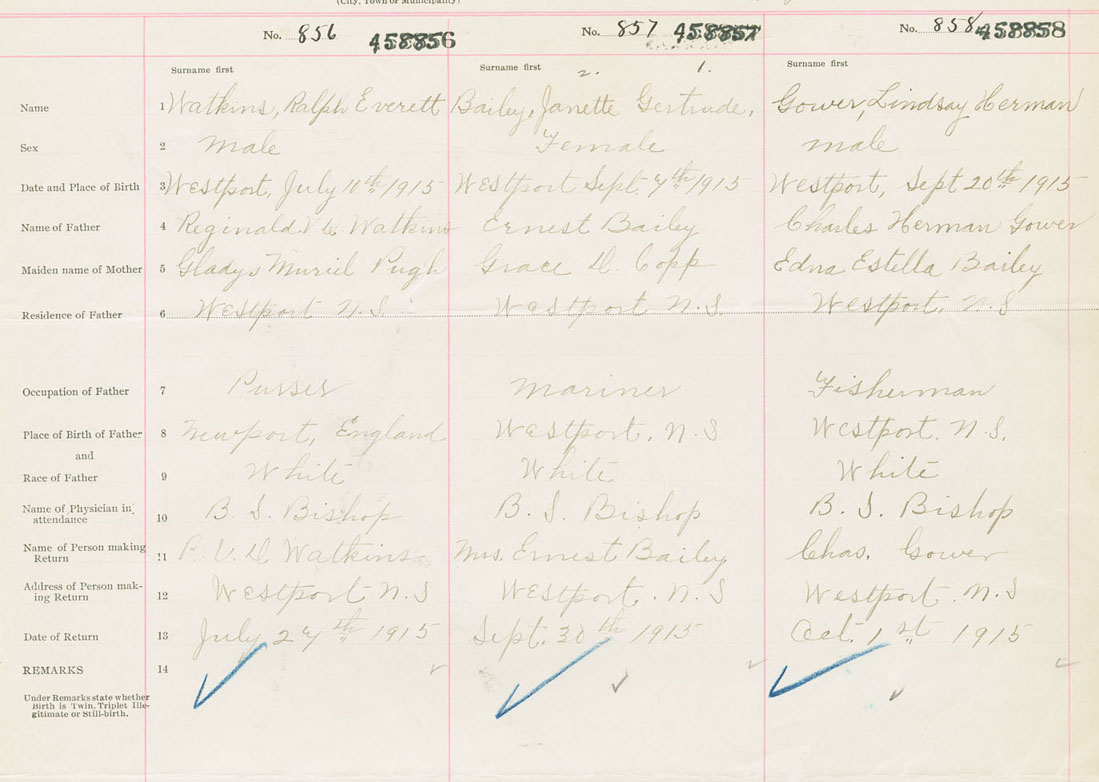 (City, Town or Municipality)
No. 856 458856 No. 857 458857 No. 858 458858
Surname first Surname first 2. 1. Surname first
Name 1 Watkins, Ralph Everett Bailey, Janette Gertrude, Gower, Lindsay Herman
Sex 2 male Female male
Date and Place of Birth 3 Westport, July 10th 1915 Westport Sept. 7th 1915 Westport, Sept 20th 1915
Name of Father 4 Reginald V. Watkins Ernest Bailey Charles Herman Gower
Maiden name of Mother 5 Gladys Muriel Pugh Grace D. Copp Edna Estella Bailey
Residence of Father 6 Westport N.S Westport N.S. Westport, N.S
Occupation of Father 7 Purser mariner Fisherman
Place of Birth of Father 8 Newport, England Westport, N.S Westport. N.S.
and
Race of Father 9 White White White
Name of Physician in attendance 10 B. S. Bishop B. S. Bishop B. S. Bishop
Name of Person making Return 11 Watkins Mrs. Ernest Bailey Chas. Gower
Address of Person making Return 12 Westport N.S Westport, N.S Westport. N.S
Date of Return 13 July 27th 1915 Sept. 30th 1915 Oct. 1st 1915
REMARKS 14
Under Remarks state whether
Birth is Twin, Triplet Ille-
gitimate or Still-birth.